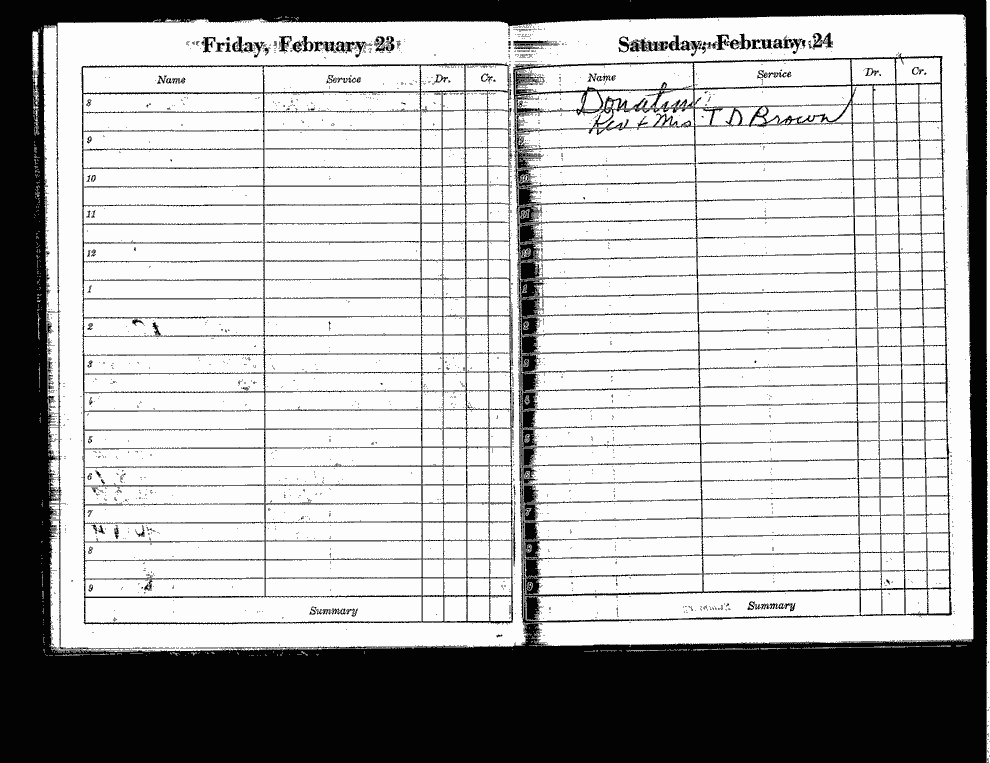 Friday, February 23
Name Service Dr. Cr.
8
9
10
11
12
1
2
3
4
5
6
7
8
9
Summary
Saturday, February 24
Name Service Dr. Cr.
Donation
Rev + Mrs T D Brown
8
9
10
11
12
1
2
3
4
5
6
7
8
9
Summary